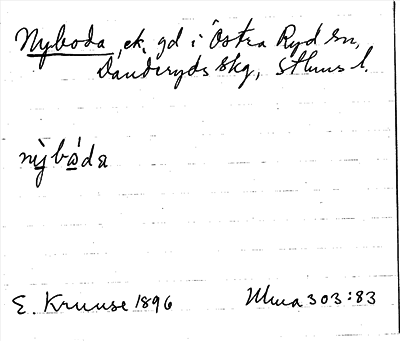 Nyboda, ek. gd i Östra Ryd sn,
Danderyds skg, Sthms l.
nỳbáda
E. Kruuse 1896
Ulma 303:83